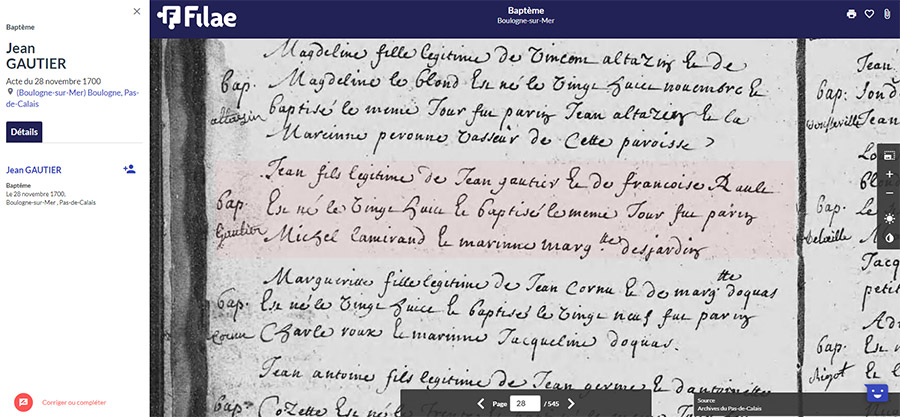 Baptême
Jean
GAUTIER
Acte du 28 novembre 1700
(Boulogne-sur-Mer) Boulogne, Pas-
de-Calais
Détails
Jean GAUTIER
Baptême
Le 28 novembre 1700,
Boulogne-sur-Mer, Pas-de-Calais
Corriger ou compléter
Filae
Baptême
Boulogne-sur-Mer
Magdeline fille legitime de Vincent altazin et de
bap. Magdeline le blond Est né le vingt huict novembre et
altazin baptisé le meme Jour fut parin Jean altazin et la
Mareinne peronne Vasseur de Cette paroisse
Jean fils legitime de Jean gautier et de francoise Raule
bap. Est né le vingt huict et baptisé le meme Jour fut parin
Gautier Michel lamirand et marinne marg.tte desjardin
Margueritte fille legitime de Jean Cornu et de marg.tte doquas
bap. Est né le vingt huict et baptisé le vingt neuf fut parin
Cornu Charle roux et marinne Jacqueline doquas.
Jean antoine fils legitime de Jean germe et d'antoinette
bap. Cozette Est né le
Jean
bap.
Jean
bap.
Le
Jacq
petit
bap.
Page 28 / 545
Source
Archives du Pas-de-Calais